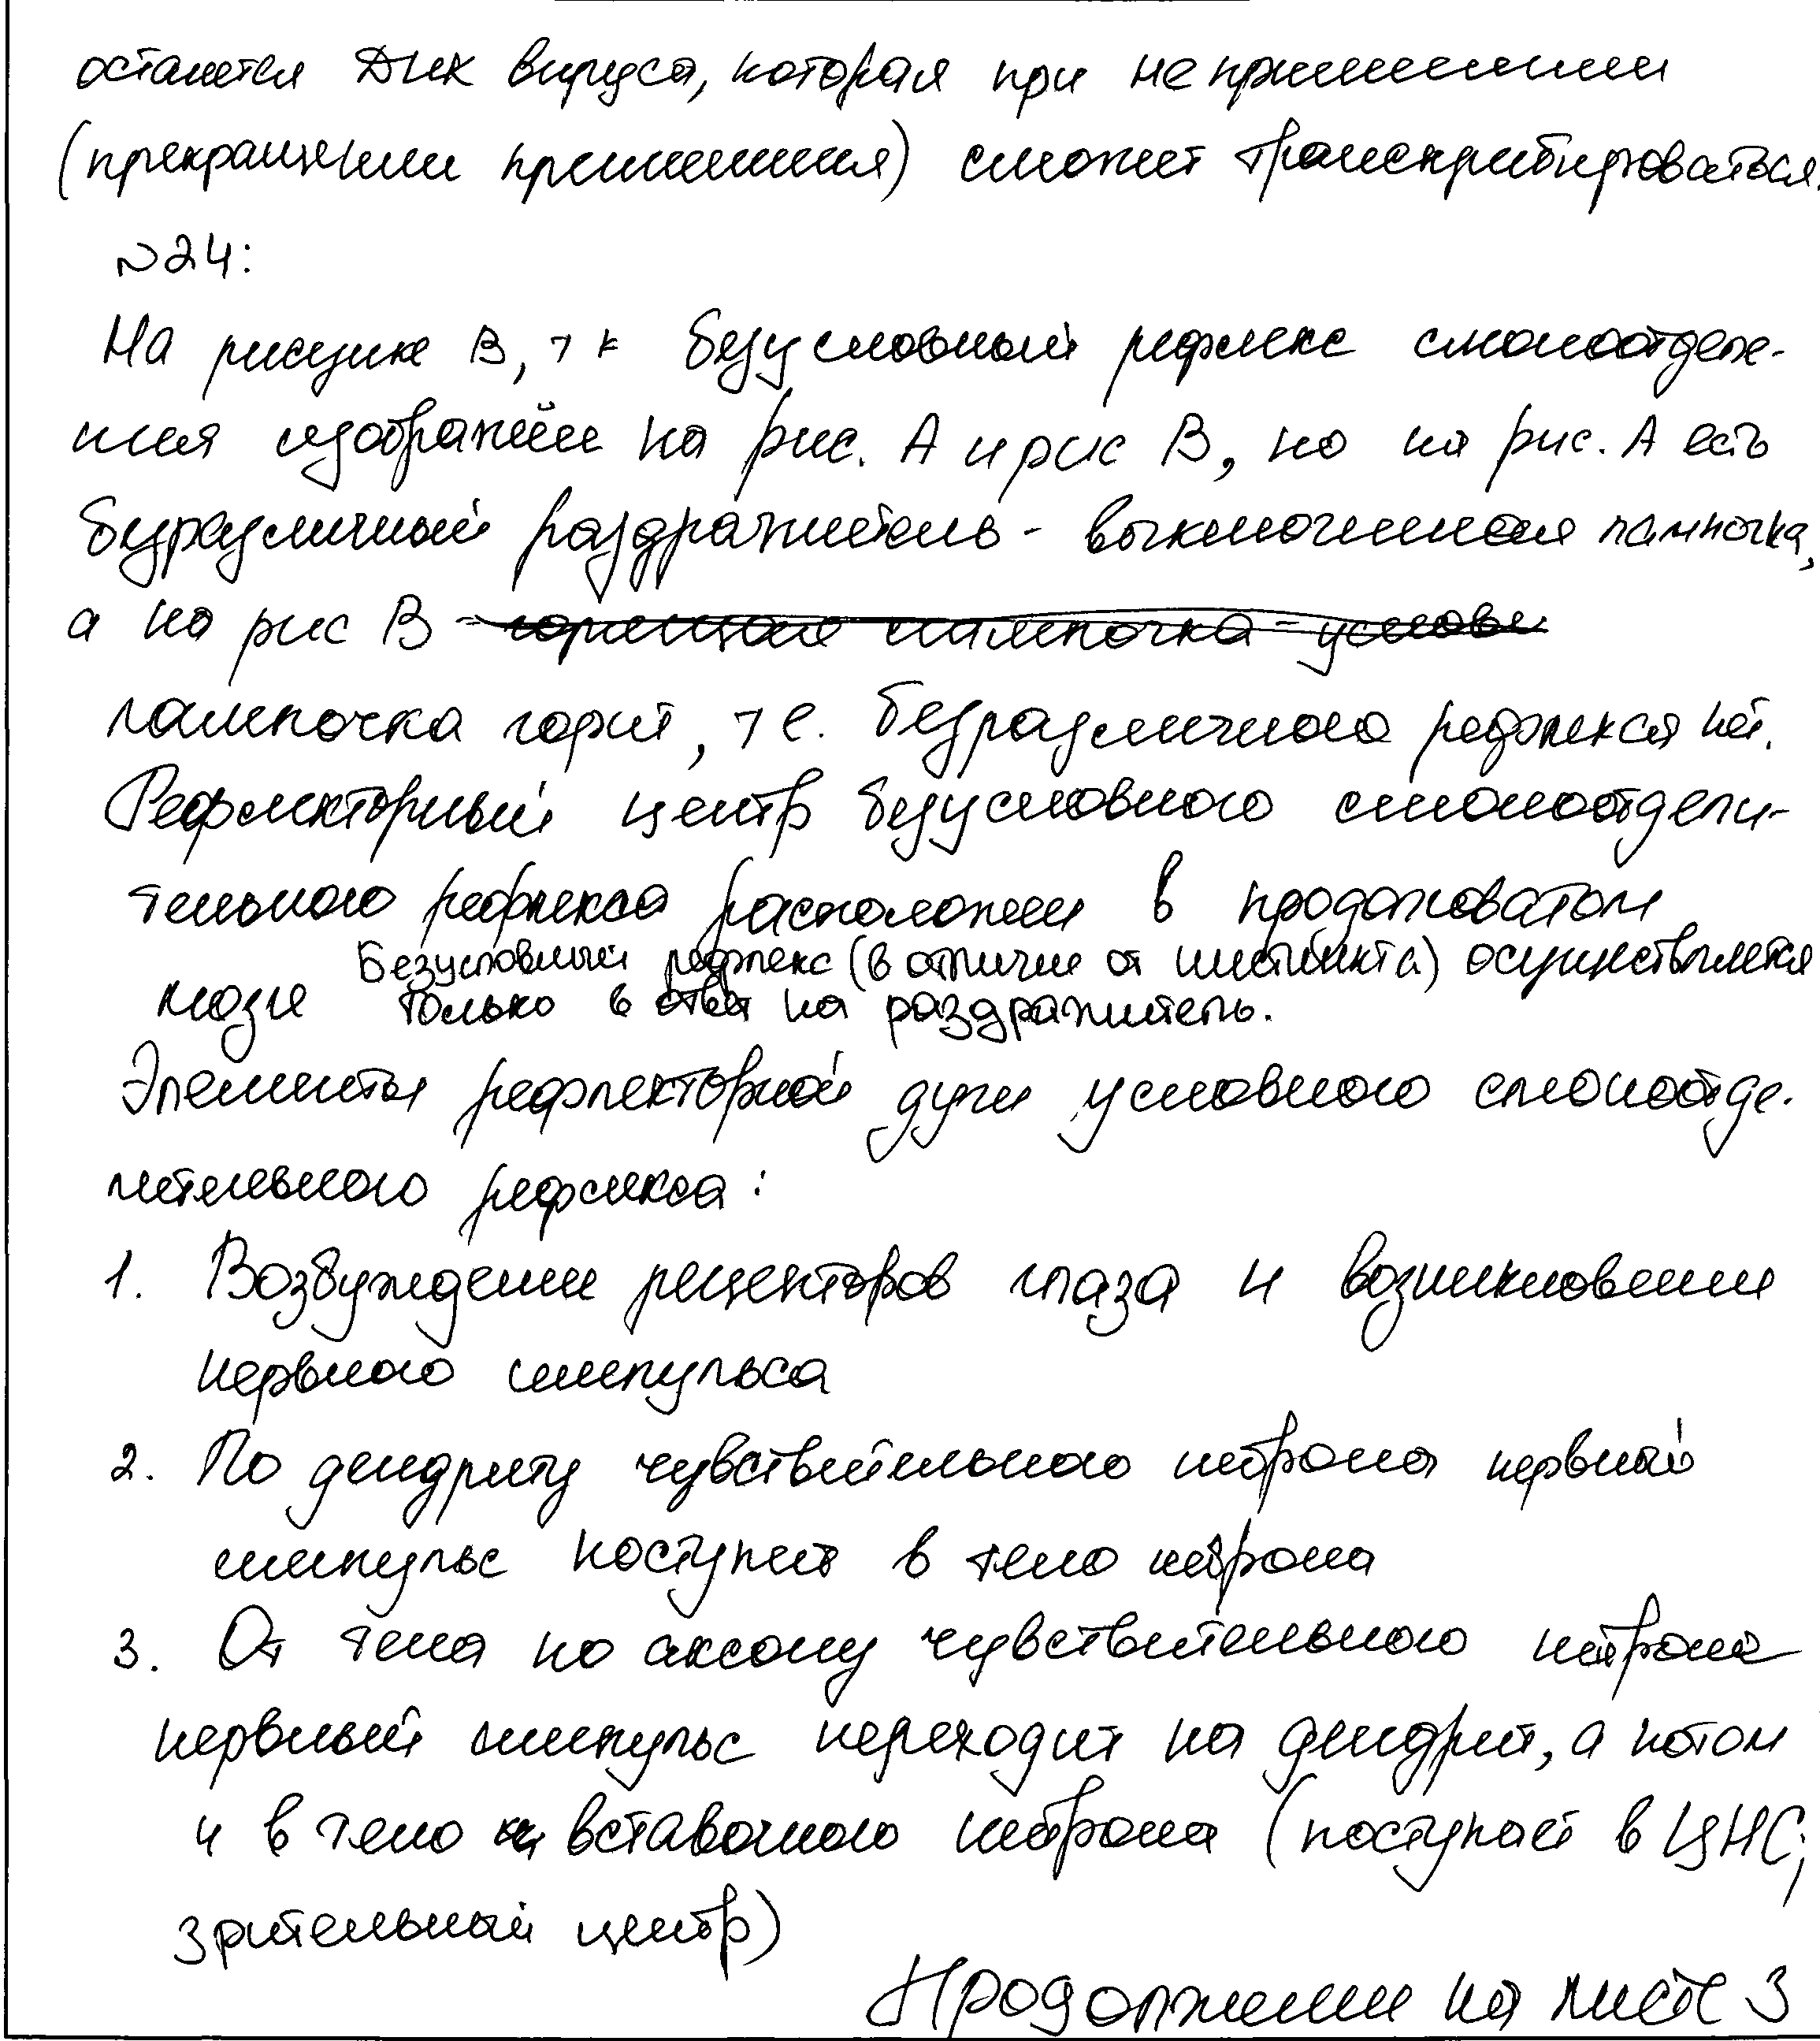 останется ДНК вируса, которая при неприменении
(прекращении применения) сможет транскрибироваться.
№24:
На рисунке В, т к безусловный рефлекс слюноотделе-
ния изображён на рис. А и рис В, но на рис. А есть
безразличный раздражитель - выключенная лампочка,
а на рис В - горящая лампочка - услови
лампочка горит, т е. безразличного рефлекса нет.
Рефлекторный центр безусловного слюноотдели-
тельного рефлекса расположен в продолговатом
Безусловный рефлекс (в отличие от инстинкта) осуществляется
мозге только в ответ на раздражитель.
Элементы рефлекторной дуги условного слюноотде-
лительного рефлекса:
1. Возбуждение рецепторов глаза и возникновение
нервного импульса
2. По дендриту чувствительного нейрона нервный
импульс поступит в тело нейрона
3. От тела по аксону чувствительного нейрона
нервный импульс переходит на дендрит, а потом
и в тело вставочного нейрона (поступает в ЦНС;
зрительный центр)
Продолжение на листе 3